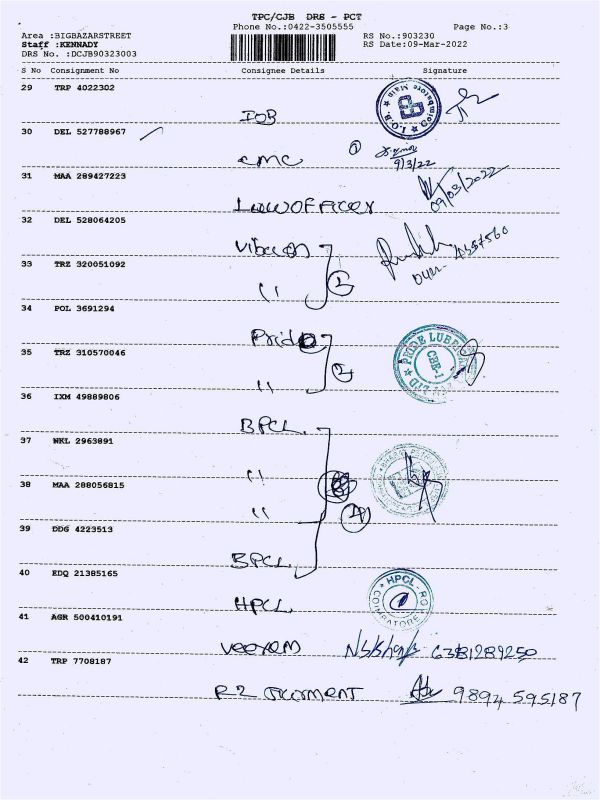 TPC/CJB DRS - PCT
Phone No.:0422-3505555 Page No.:3
Area :BIGBAZARSTREET RS No.:903230
Staff :KENNADY RS Date:09-Mar-2022
DRS No. :DCJB90323003
S No Consignment No Consignee Details Signature
29 TRP 4022302
IOB
I.O.B. Coimbatore Main
30 DEL 527788967
CMC 1
9/3/22
31 MAA 289427223
LAWOFFICER
09/03/2022
32 DEL 528064205
33 TRZ 320051092
" 2
34 POL 3691294
Pride
PRIDE CBE-1
35 TRZ 310570046
" 2
36 IXM 49889806
BPCL
37 NKL 2963891
"
38 MAA 288056815
" 4
39 DDG 4223513
BPCL
40 EDQ 21385165
HPCL
HPCL-RO COIMBATORE
41 AGR 500410191
42 TRP 7708187
R2 9894 595187